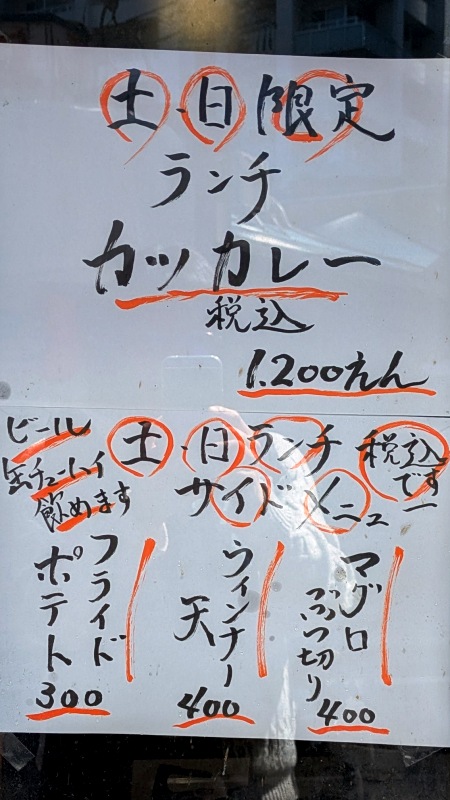 土・日限定
ランチ
カツカレー
税込
1.200えん
ビール
缶チューハイ
飲めます
土・日ランチ
サイドメニュー
税込
です
マグロ
ぶつ切り
400
ウィンナー
天
400
フライド
ポテト
300